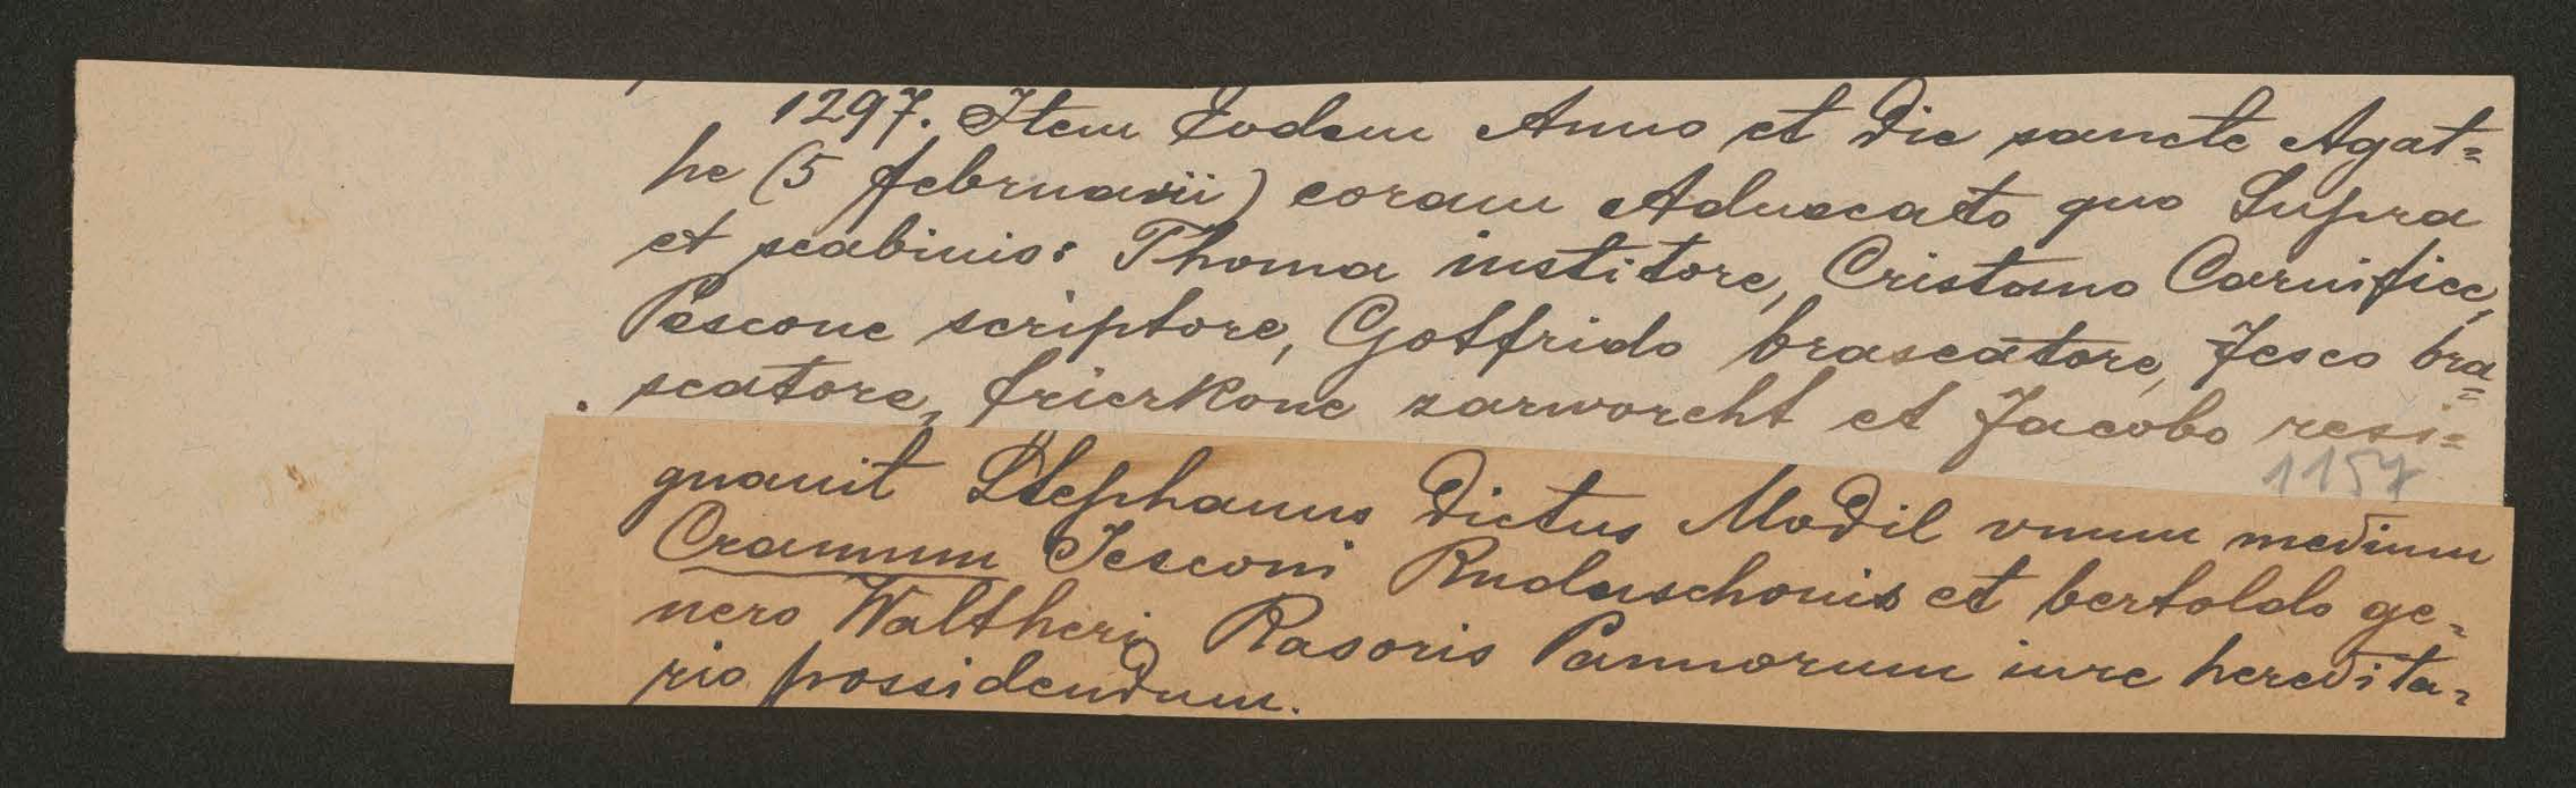 1297. Item Eodem Anno et Die sancte Agat=
he (5 februarii) coram Aduocato quo Supra
et scabinis: Thoma institore, Cristano Carnifice,
Pescone scriptore, Gotfrido braseatore, Jesco bra=
seatore, frierkone zarworcht et Jacobo resi=
1157
gnauit Stephanus Dictus Modil vnum medium
Cramum Jesconi Rudaschonis et bertoldo ge=
nero Waltheri Rasoris Pannorum iure heredita=
rio possidendum.